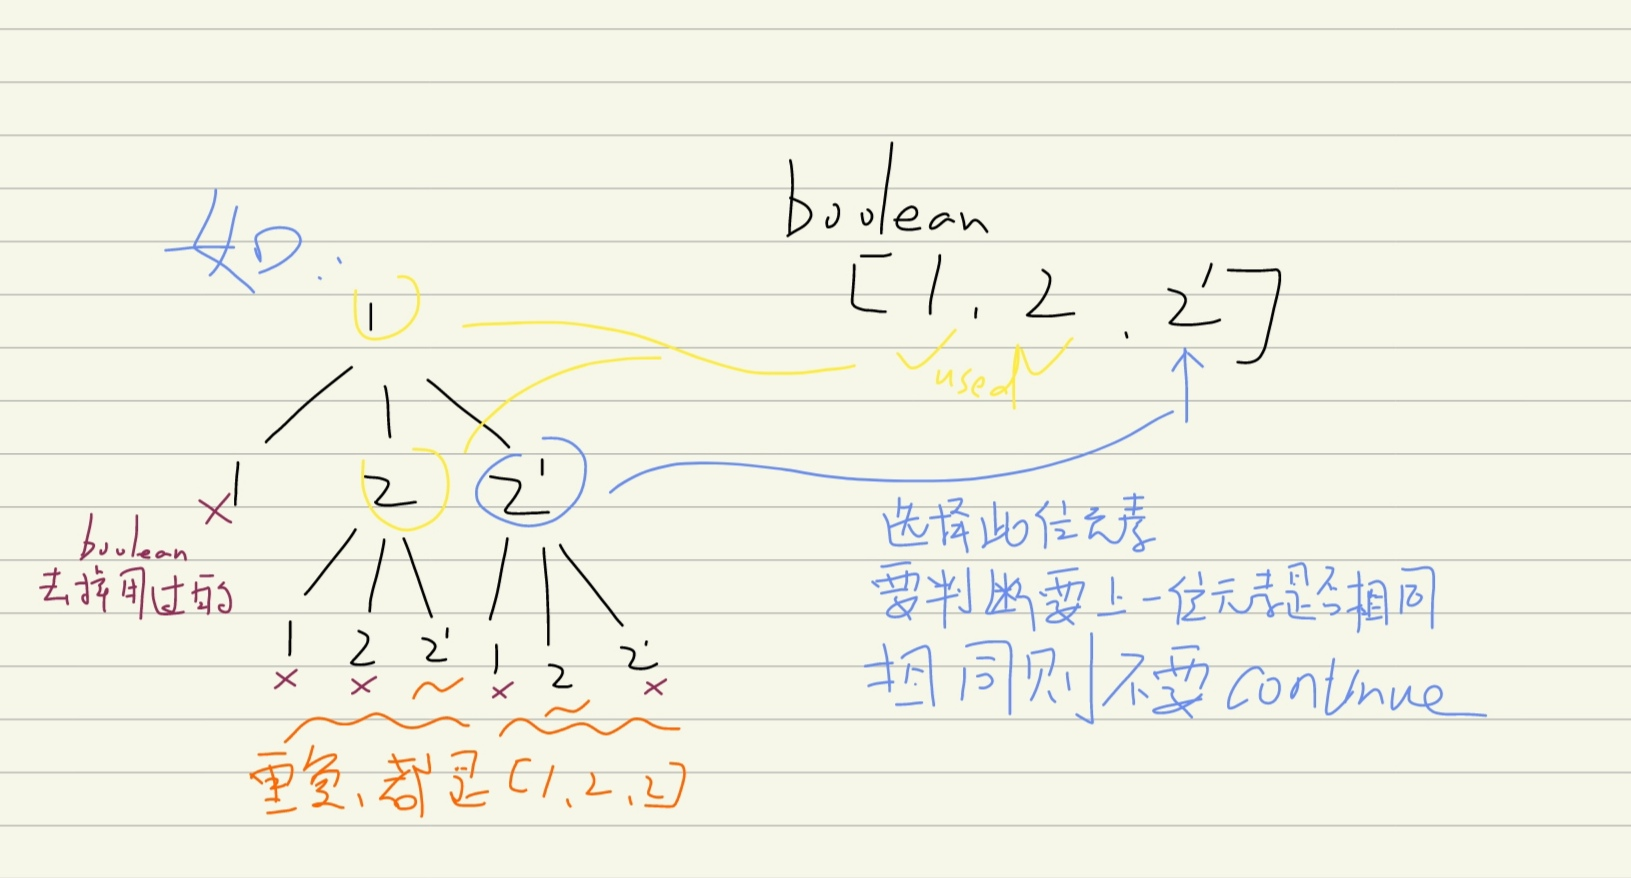 boolean
[1, 2, 2']
如:
1
used
1 2 2'
×
boolean
去掉用过的
1 2 2' 1 2 2'
× × × ×
重复、都是[1,2,2]
选择此位元素
要判断要上一位元素是否相同
相同则不要continue